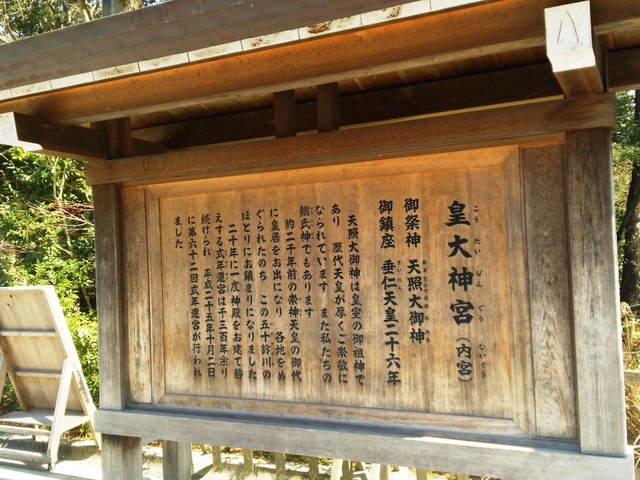 皇大神宮(内宮)
こうたいじんぐう ないくう
御祭神 天照大御神
御鎮座 垂仁天皇二十六年
すいにん
天照大御神は皇室の御祖神で
あり 歴代天皇が厚くご崇敬に
なられています また私たちの
総氏神でもあります
約二千年前の崇神天皇の御代
に皇居をお出になり 各地をめ
ぐられたのち この五十鈴川の
ほとりにお鎮まりになりました
二十年に一度神殿をお建て替
えする式年遷宮は千三百年余り
続けられ 平成二十五年十月二日
に第六十二回式年遷宮が行われ
ました
八